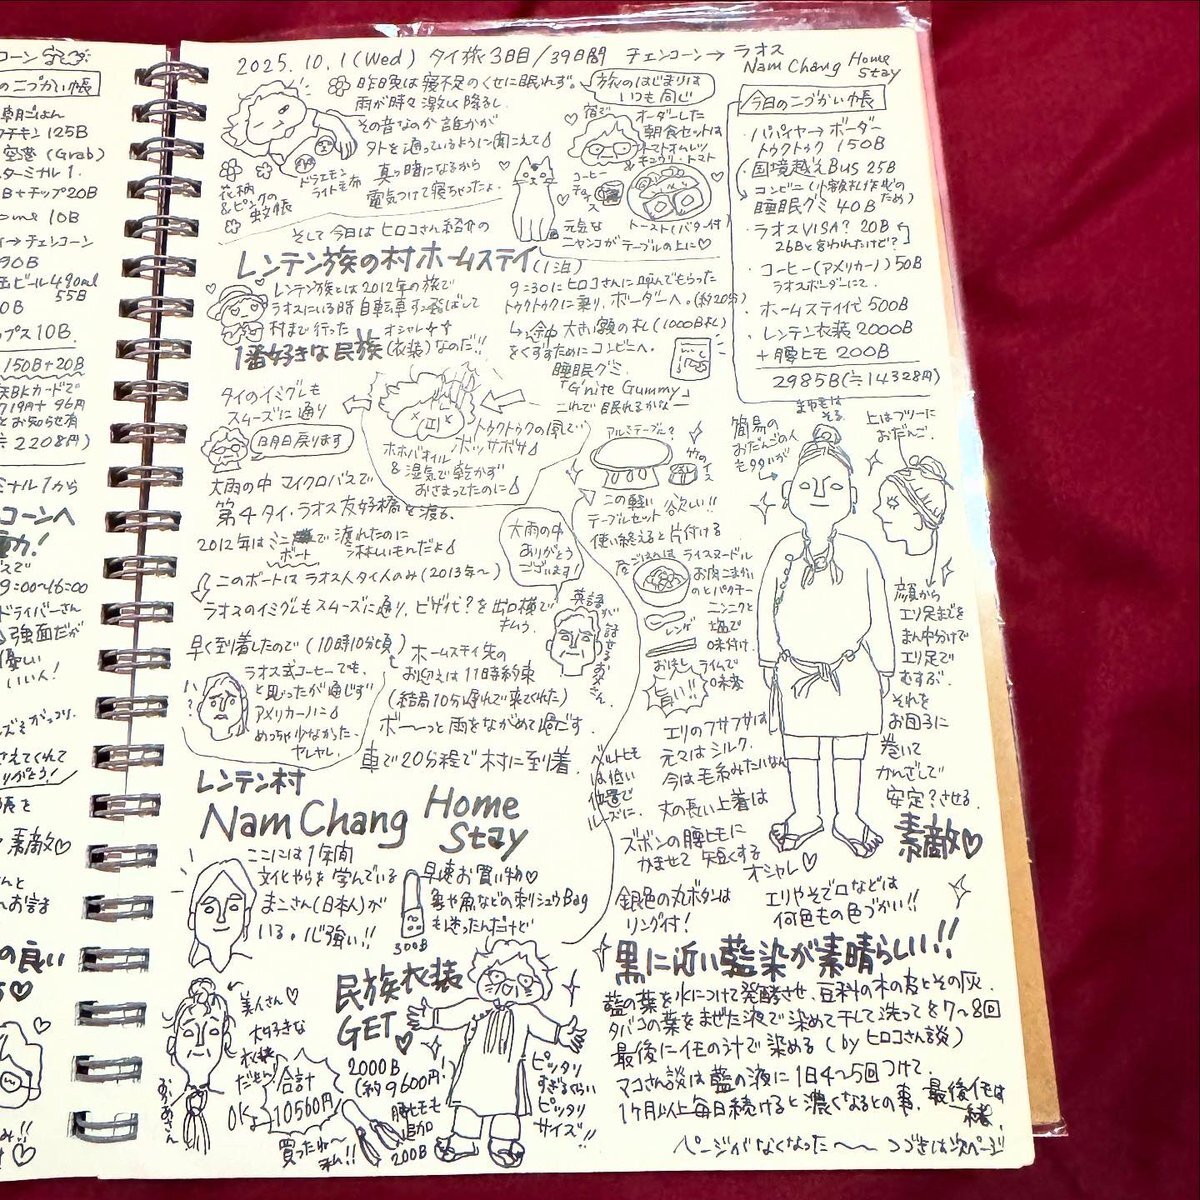 2025.10.1(Wed) タイ旅3日目/39日間 チェンコーン→ラオス
Nam Chang Home Stay
昨日晩は寝不足のくせに眠れず。
雨が時々激しく降るし、
その音なのか誰かが
外を通っているように聞こえて
真っ暗になるから
電気つけて寝ちゃったよ。
ドラエモン
ライト毛布
花柄
&ピンクの
蚊帳
旅のはじまりは
いつも同じ
宿で
オーダーした
朝食セットは
トマトオムレツ
キュウリ・トマト
コーヒー
トースト(バター付)
元気な
ニャンコがテーブルの上に♡
そして今日はヒロコさん紹介の
レンテン族の村ホームステイ(1泊)
レンテン族とは2012年の旅で
ラオスにいる時自転車すっ飛ばして
村まで行った オシャレ
1番好きな民族(衣装)なのだ!!
9:30にヒロコさんに呼んでもらった
トゥクトゥクに乗り、ボーダーへ。(約20分)
大きい額の札(1000B札)
をくずすためにコンビニへ。
睡眠グミ
「G'nite Gummy」
これで眠れるかな
タイのイミグレも
スムーズに通り
明日戻ります
トゥクトゥクの風で
ボッサボサ
ホホバオイル
&湿気で乾かず
おさまってたのに
大雨の中 マイクロバスで
第4タイ・ラオス友好橋を渡る。
2012年はミニボートで渡れたのに
淋しいもんだよ
このボートはラオス人タイ人のみ(2013年~)
ラオスのイミグレもスムーズに通り、ビザ代?を出口横で
大雨の中
ありがとう
ございます!
英語
話せる
お父さん
早く到着したので(10時10分頃)
ラオス式コーヒーでも、
と思ったが通じず
アメリカーノに
めっちゃ少なかった。
ヤレヤレ。
ホームステイ先の
お迎えは11時約束
(結局10分遅れで来てくれた)
ボ〜〜っと雨をながめて過ごす。
車で20分程で村に到着。
レンテン村
Nam Chang Home Stay
ここには1年間
文化やらを学んでいる
まこさん(日本人)が
いる。心強い!!
早速お買い物♡
象や魚などの刺シュウBag
も迷ったんだけど
300B
美人さん♡
大好きな
衣装
だもん
OK
おかあさん
合計
10560円
買ったね〜
私!!
民族衣装
GET♡
2000B
(約9600円!)
腰ヒモも
追加
200B
ピッタリ
すぎるくらい
ピッタリ
サイズ!!
今日の二づかい帳
・パパイヤ→ボーダー
トゥクトゥク 150B
・国境越えBus 25B
・コンビニ(小額札作成のため)
睡眠グミ 40B
・ラオスVISA? 20B
26Bと言われたけど?
・コーヒー(アメリカーノ)50B
ラオスボーダーにて
・ホームステイ代 500B
・レンテン衣装 2000B
+腰ヒモ 200B
2985B(≒14328円)
アルミテーブル?
竹のイス
この軽い
テーブルセット欲しい!!
使い終えると片付ける
昼ごはんは
ライスヌードル
お肉こまかい
のとパクチー
ニンニクと
塩で
味付け。
レンゲ
お好し、ライムで
味変
旨い!!
簡易の
おだんごの人
も多いが
まゆ毛は
そる。
上はフリーに
おだんご。
顔から
エリ足までを
まん中分けで
エリ足で
むすぶ。
それを
お団子に
巻いて
かんざしで
安定?させる。
素敵♡
エリのフサフサは
元々はシルク。
今は毛糸みたいなの
ベルトヒモ
は低い
位置で
ルーズに。
丈の長い上着は
ズボンの腰ヒモに
かませて短くする
オシャレ♡
銀色の丸ボタンは
リング付!
エリやそで口などは
何色もの色づかい!!
黒に近い藍染が素晴らしい!!
藍の葉を水につけて発酵させ、豆科の木の皮とその灰、
タバコの葉をまぜた液で染めて干して洗ってを7〜8回
最後にイモの汁で染める(byヒロコさん談)
マコさん談は藍の液に1日4〜5回つけて、
1ヶ月以上毎日続けると濃くなるとの事。最後イモは一緒。
ページがなくなった〜〜 つづきは次ページ
コーン
の二づかい帳
朝ごはん
チキン125B
空港(Grab)
ターミナル1.
B+チップ20B
ome 10B
→チェンコーン
90B
缶ビール490ml
0B 55B
ップス10B
150B+20B
BKカードで
719円+96円
とお知らせ有
≒2208円)
ミナル1から
コーンへ
9:00〜16:00
ドライバーさん
強面だが
優しい
いい人!
さえてくれて
素敵♡
の良い